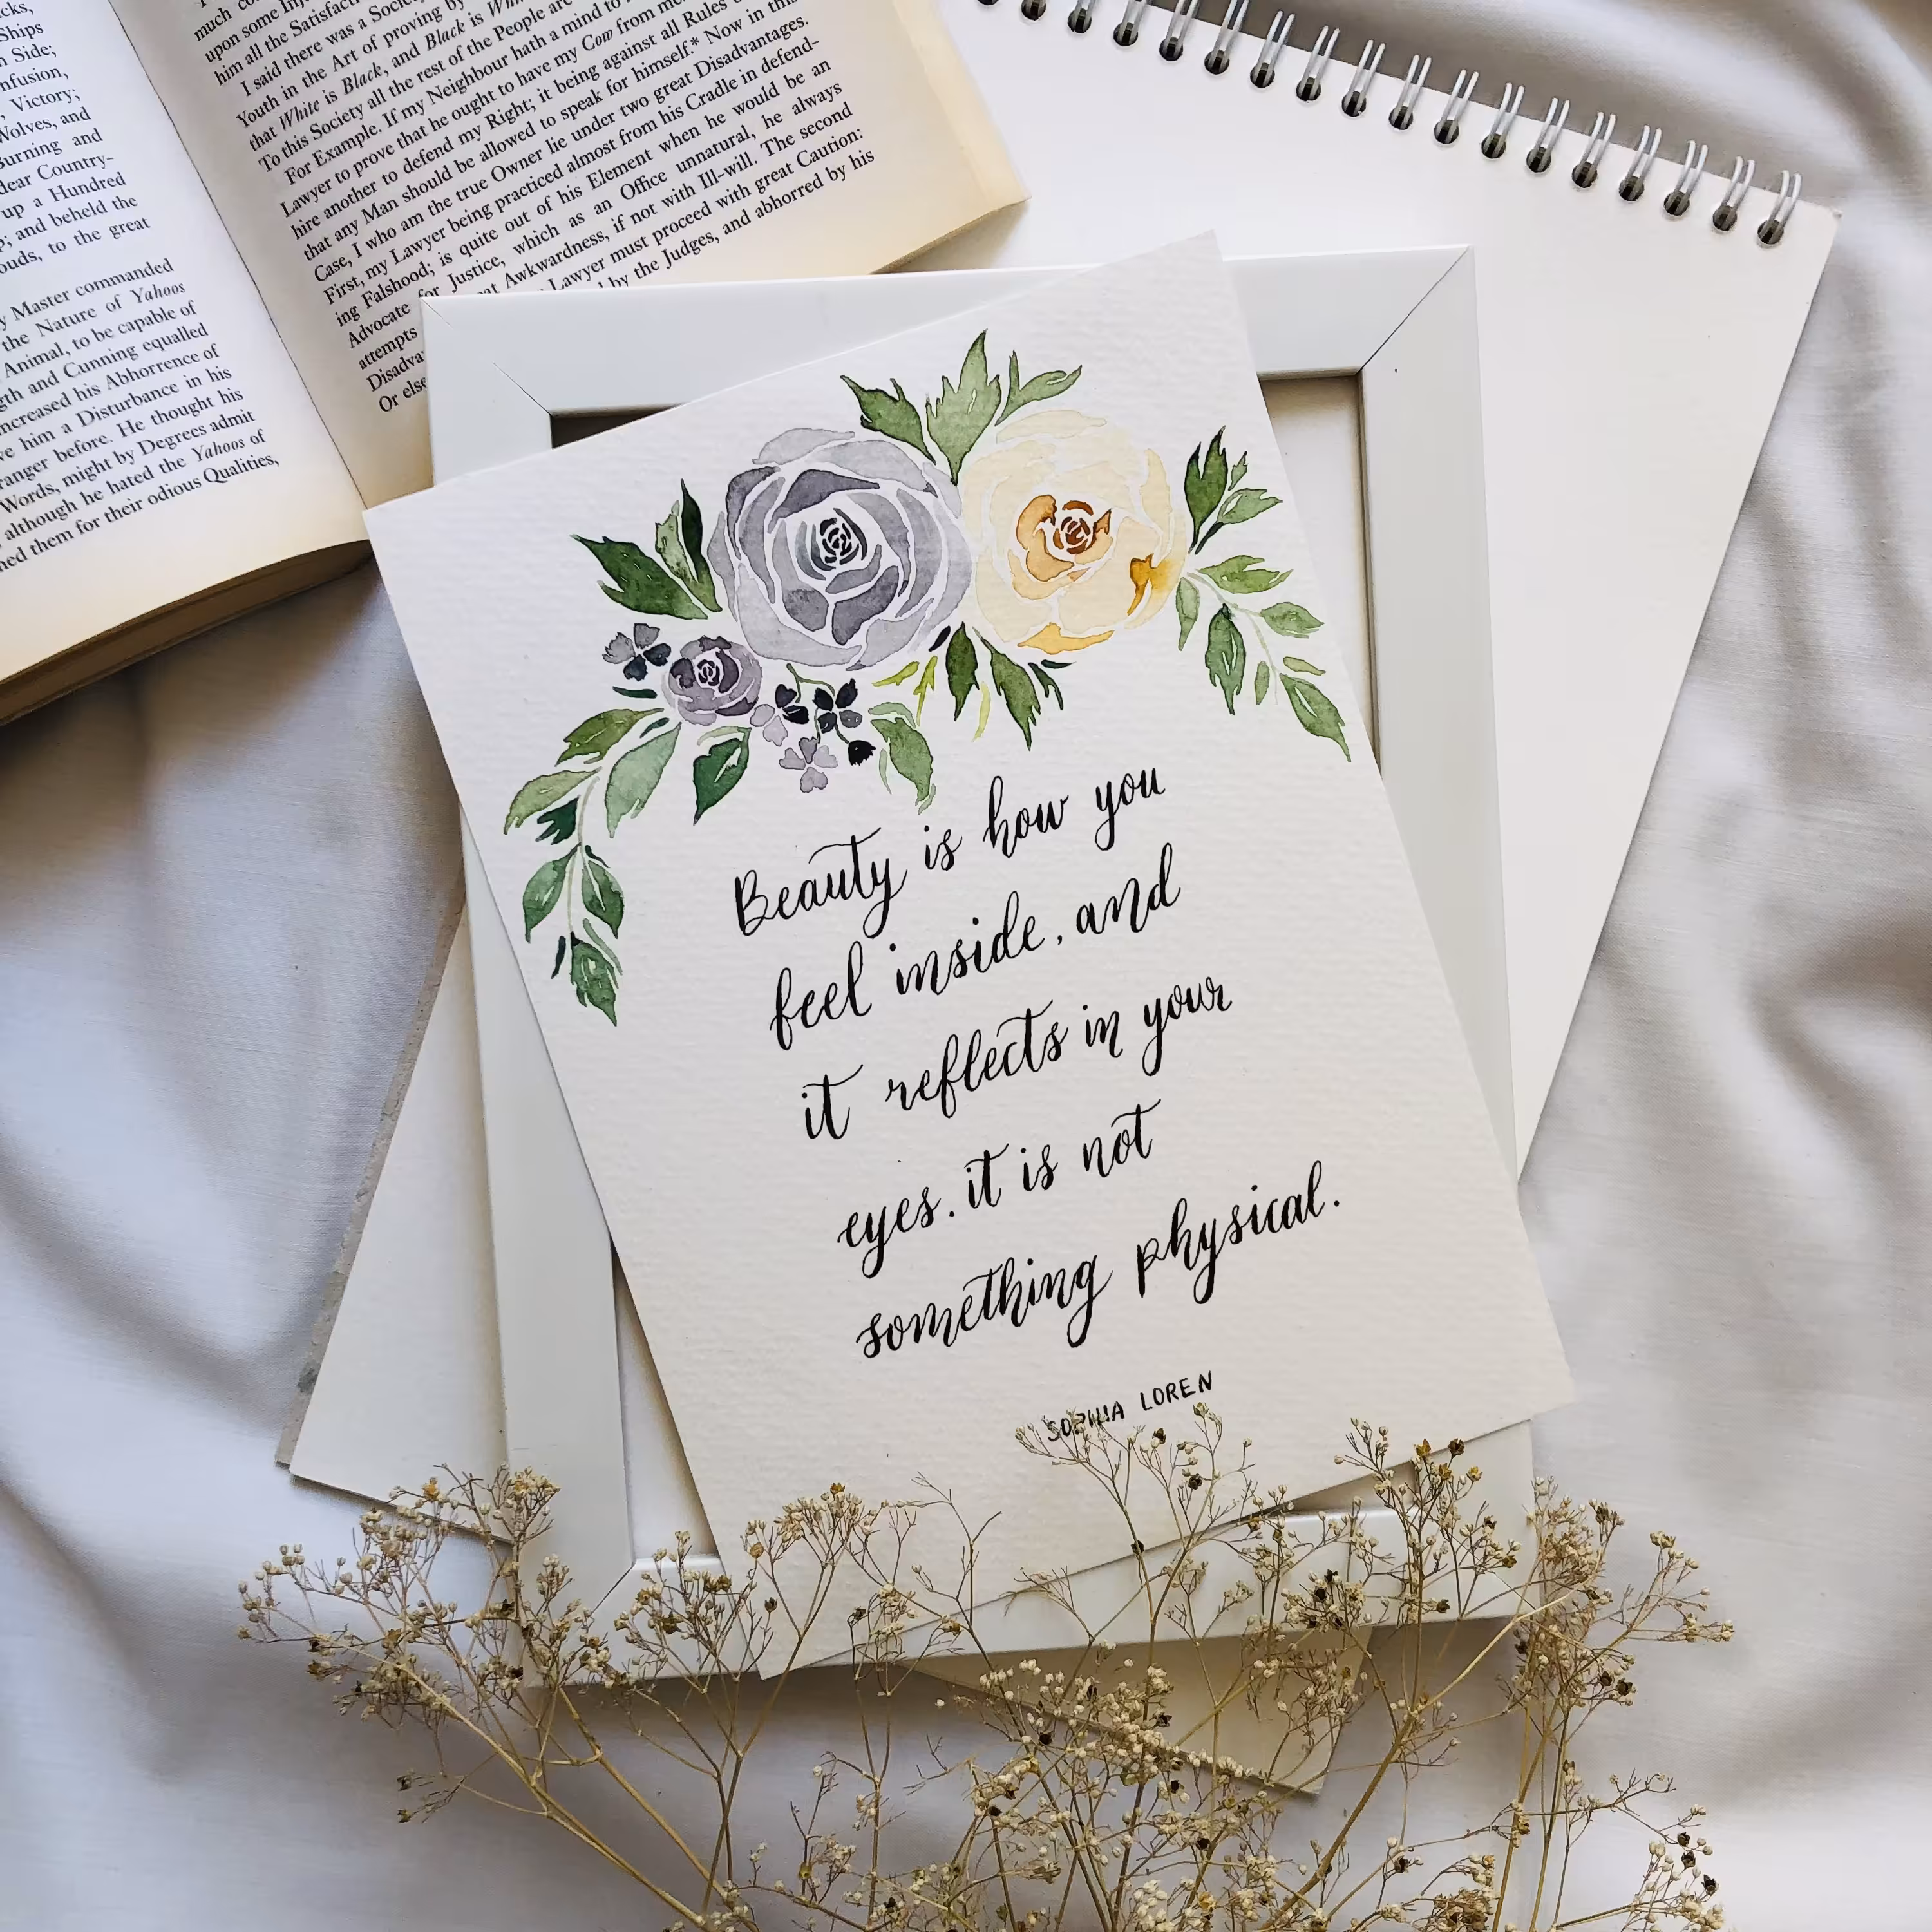 cks,
Ships
Side;
nfusion,
Victory;
Wolves, and
Burning and
dear Country-
up a Hundred
; and beheld the
ouds, to the great
y Master commanded
the Nature of Yahoos
Animal, to be capable of
gth and Cunning equalled
increased his Abhorrence of
ve him a Disturbance in his
ranger before. He thought his
Words, might by Degrees admit
although he hated the Yahoos of
ned them for their odious Qualities,
much
upon some
him all the Satisfac
I said there was a Socie
Youth in the Art of proving by
that White is Black, and Black is Whi
To this Society all the rest of the People are
For Example. If my Neighbour hath a mind to
Lawyer to prove that he ought to have my Cow from me
hire another to defend my Right; it being against all Rules
that any Man should be allowed to speak for himself.* Now in this
Case, I who am the true Owner lie under two great Disadvantages.
First, my Lawyer being practiced almost from his Cradle in defend-
ing Falshood; is quite out of his Element when he would be an
Advocate for Justice, which as an Office unnatural, he always
attempts at Awkwardness, if not with Ill-will. The second
Disadva Lawyer must proceed with great Caution:
Or else by the Judges, and abhorred by his
Beauty is how you
feel inside, and
it reflects in your
eyes. it is not
something physical.
SOPHIA LOREN